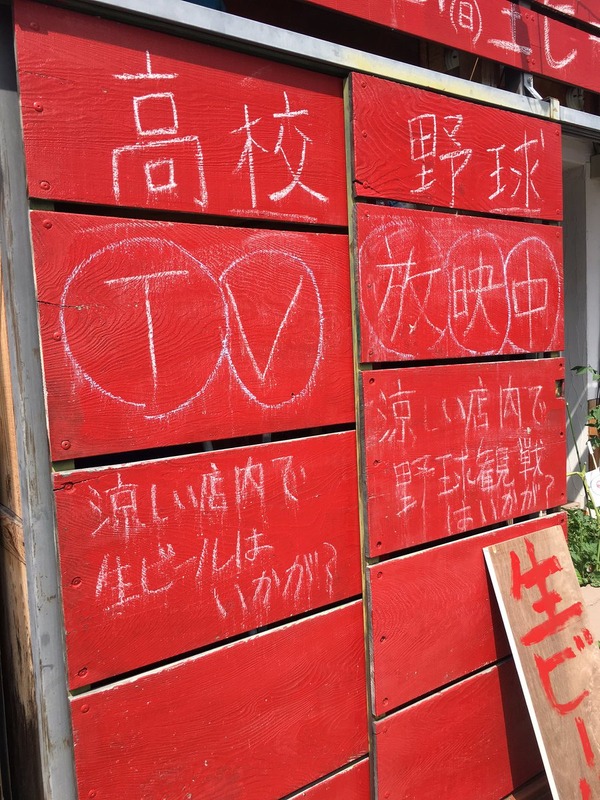 高校野球
TV放映中
涼しい店内で
生ビールは
いかが?
涼しい店内で
野球観戦
はいかが?
生ビー